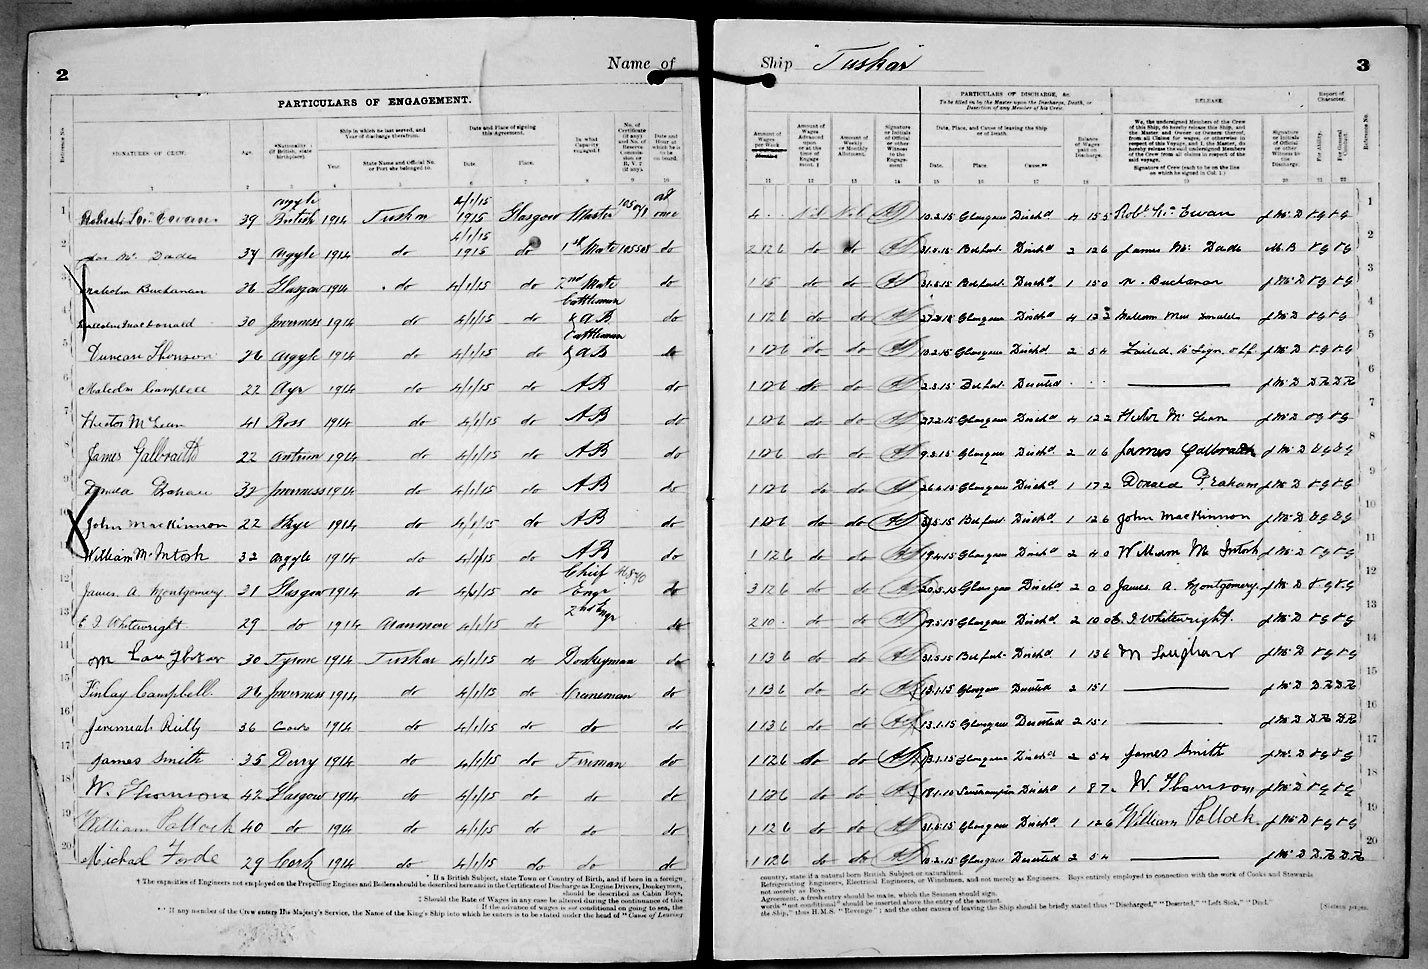 2
Name of
Ship "Tuskar"
3
PARTICULARS OF ENGAGEMENT.
PARTICULARS OF DISCHARGE, &c.
To be filled in by the Master upon the Discharge, Death, or Desertion of any Member of his Crew.
RELEASE.
Report of Character.
Reference No.
SIGNATURES OF CREW.
Age.
*Nationality (if British, state birthplace).
Ship in which he last served, and Year of discharge therefrom.
Year.
State Name and Official No. or Port she belonged to.
Date and Place of signing this Agreement.
Date.
Place.
In what Capacity engaged.†
No. of Certificate (if any)
Date and Hour at which he is to be on board.
Amount of Wages per Week
Amount of Wages Advanced upon or at the time of Engagement. ‡
Amount of Weekly or Monthly Allotment.
Signature or Initials of Official or other Witness to the Engagement
Date, Place, and Cause of leaving the Ship or of Death.
Date.
Place.
Cause**
Balance of Wages paid on Discharge.
We, the undersigned Members of the Crew of this Ship, do hereby release this Ship, and the Master and Owner or Owners thereof, from all Claims for wages, or otherwise in respect of this Voyage, and I, the Master, do hereby release the said undersigned Members of the Crew from all claims in respect of the said voyage.
Signature of Crew (each to be on the line on which he signed in Col. 1.)
Signature or Initials of Official or other Witness to the Discharge
For Ability.
For General Conduct.
Reference No.
1 39 Argyle British 1914 Tuskar 4/1/15 1915 Glasgow Master at once 4 Nil Nil 10.2.15 Glasgow Disch'd 4 15 5 Rob't McEwan J McD 1
2 Jas Mc Dade 37 Argyle 1914 do 4/1/15 1915 do 1st Mate do 2 12 6 do do 31.5.15 Belfast Disch'd 2 12 6 James Mc Dade M.B VG VG 2
3 Malcolm Buchanan 26 Glasgow 1914 do 4/1/15 do 2nd Mate do do do 31.5.15 Belfast Disch'd 1 15 0 M. Buchanan J McD VG VG 3
4 Malcolm MacDonald 30 Inverness 1914 do 4/1/15 do Cattleman & AB do 1 12 6 do do Glasgow Disch'd 4 12 2 J McD VG VG 4
5 Duncan Thomson 26 Argyle 1914 do 4/1/15 do Cattleman & AB do 1 12 6 do do 10.2.15 Glasgow Disch'd 2 5 4 Failed to Sign off J McD VG VG 5
6 Malcolm Campbell 22 Ayr 1914 do 4/1/15 do AB do 1 12 6 do do 2.3.15 Belfast Deserted J McD DR DR 6
7 Hector McLean 41 Ross 1914 do 4/1/15 do AB do 1 12 6 do do 27.2.15 Glasgow Disch'd 4 12 2 Hector McLean J McD VG VG 7
8 James Galbraith 22 Antrim 1914 do 4/1/15 do AB do 1 12 6 do do Glasgow Disch'd 2 11 6 James Galbraith J McD VG VG 8
9 Donald Graham 32 Inverness 1914 do 4/1/15 do AB do 1 12 6 do do 26.4.15 Glasgow Disch'd 1 17 2 Donald Graham J McD VG VG 9
10 John MacKinnon 22 Skye 1914 do 4/1/15 do AB do 1 12 6 do do 31.5.15 Belfast Disch'd 1 12 6 John MacKinnon J McD VG VG 10
11 William McIntosh 32 Argyle 1914 do 4/1/15 do AB do 1 12 6 do do 19.4.15 Glasgow Disch'd 2 4 0 William McIntosh J McD VG VG 11
12 James A. Montgomery 31 Glasgow 1914 do 4/1/15 do Chief Engr do 3 17 6 do do 20.5.15 Glasgow Disch'd 2 0 0 James A. Montgomery J McD VG VG 12
13 E J Whitewright 29 do 1914 4/1/15 do 2nd Engr do 2 10 do do 19.5.15 Glasgow Disch'd 2 10 0 E. J Whitewright J McD VG VG 13
14 30 Tyrone 1914 Tuskar 4/1/15 do Donkeyman do 1 13 6 do do 31.5.15 Belfast Disch'd 1 13 6 J McD VG VG 14
15 Finlay Campbell 26 Inverness 1914 do 4/1/15 do do 1 13 6 do do 13.1.15 Glasgow Deserted 2 15 1 J McD DR DR 15
16 Jeremiah Reilly 36 Cork 1914 do 4/1/15 do do do 1 13 6 do do 13.1.15 Glasgow Deserted 2 15 1 J McD DR DR 16
17 James Smith 35 Derry 1914 do 4/1/15 do Fireman do 1 12 6 do do Glasgow Disch'd 2 5 4 James Smith J McD VG VG 17
18 W. Thomson 42 Glasgow 1914 do 4/1/15 do do do 1 12 6 do do Southampton Disch'd 1 8 7 W. Thomson J McD VG VG 18
19 William Pollock 40 do 1914 do 4/1/15 do do do 1 12 6 do do 31.5.15 Glasgow Disch'd 1 12 6 William Pollock J McD VG VG 19
20 Michael Forde 29 Cork 1914 do 4/1/15 do do do 1 12 6 do do 10.2.15 Glasgow Deserted 2 5 4 J McD DR DR 20
* If a British Subject, state Town or Country of Birth, and if born in a foreign
country, state if a natural-born British Subject or naturalized.
† The capacities of Engineers not employed on the Propelling Engines and Boilers should be described here and in the Certificate of Discharge as Engine Drivers, Donkeymen,
Refrigerating Engineers, Electrical Engineers, or Winchmen, and not merely as Engineers. Boys entirely employed in connection with the work of Cooks and Stewards
should be described as Cabin Boys,
not merely as Boys.
‡ Should the Rate of Wages in any case be altered during the continuance of this
Agreement, a fresh entry should be made, which the Seaman should sign.
If the advance of wages is not conditional on going to sea, the
words "not conditional" should be inserted above the entry of the amount.
** If any member of the Crew enters His Majesty's Service, the Name of the King's Ship into which he enters is to be stated under the head of "Cause of Leaving
the Ship," thus H.M.S. "Revenge"; and the other causes of leaving the Ship should be briefly stated thus "Discharged," "Deserted," "Left Sick," "Died."
[Sixteen pages.